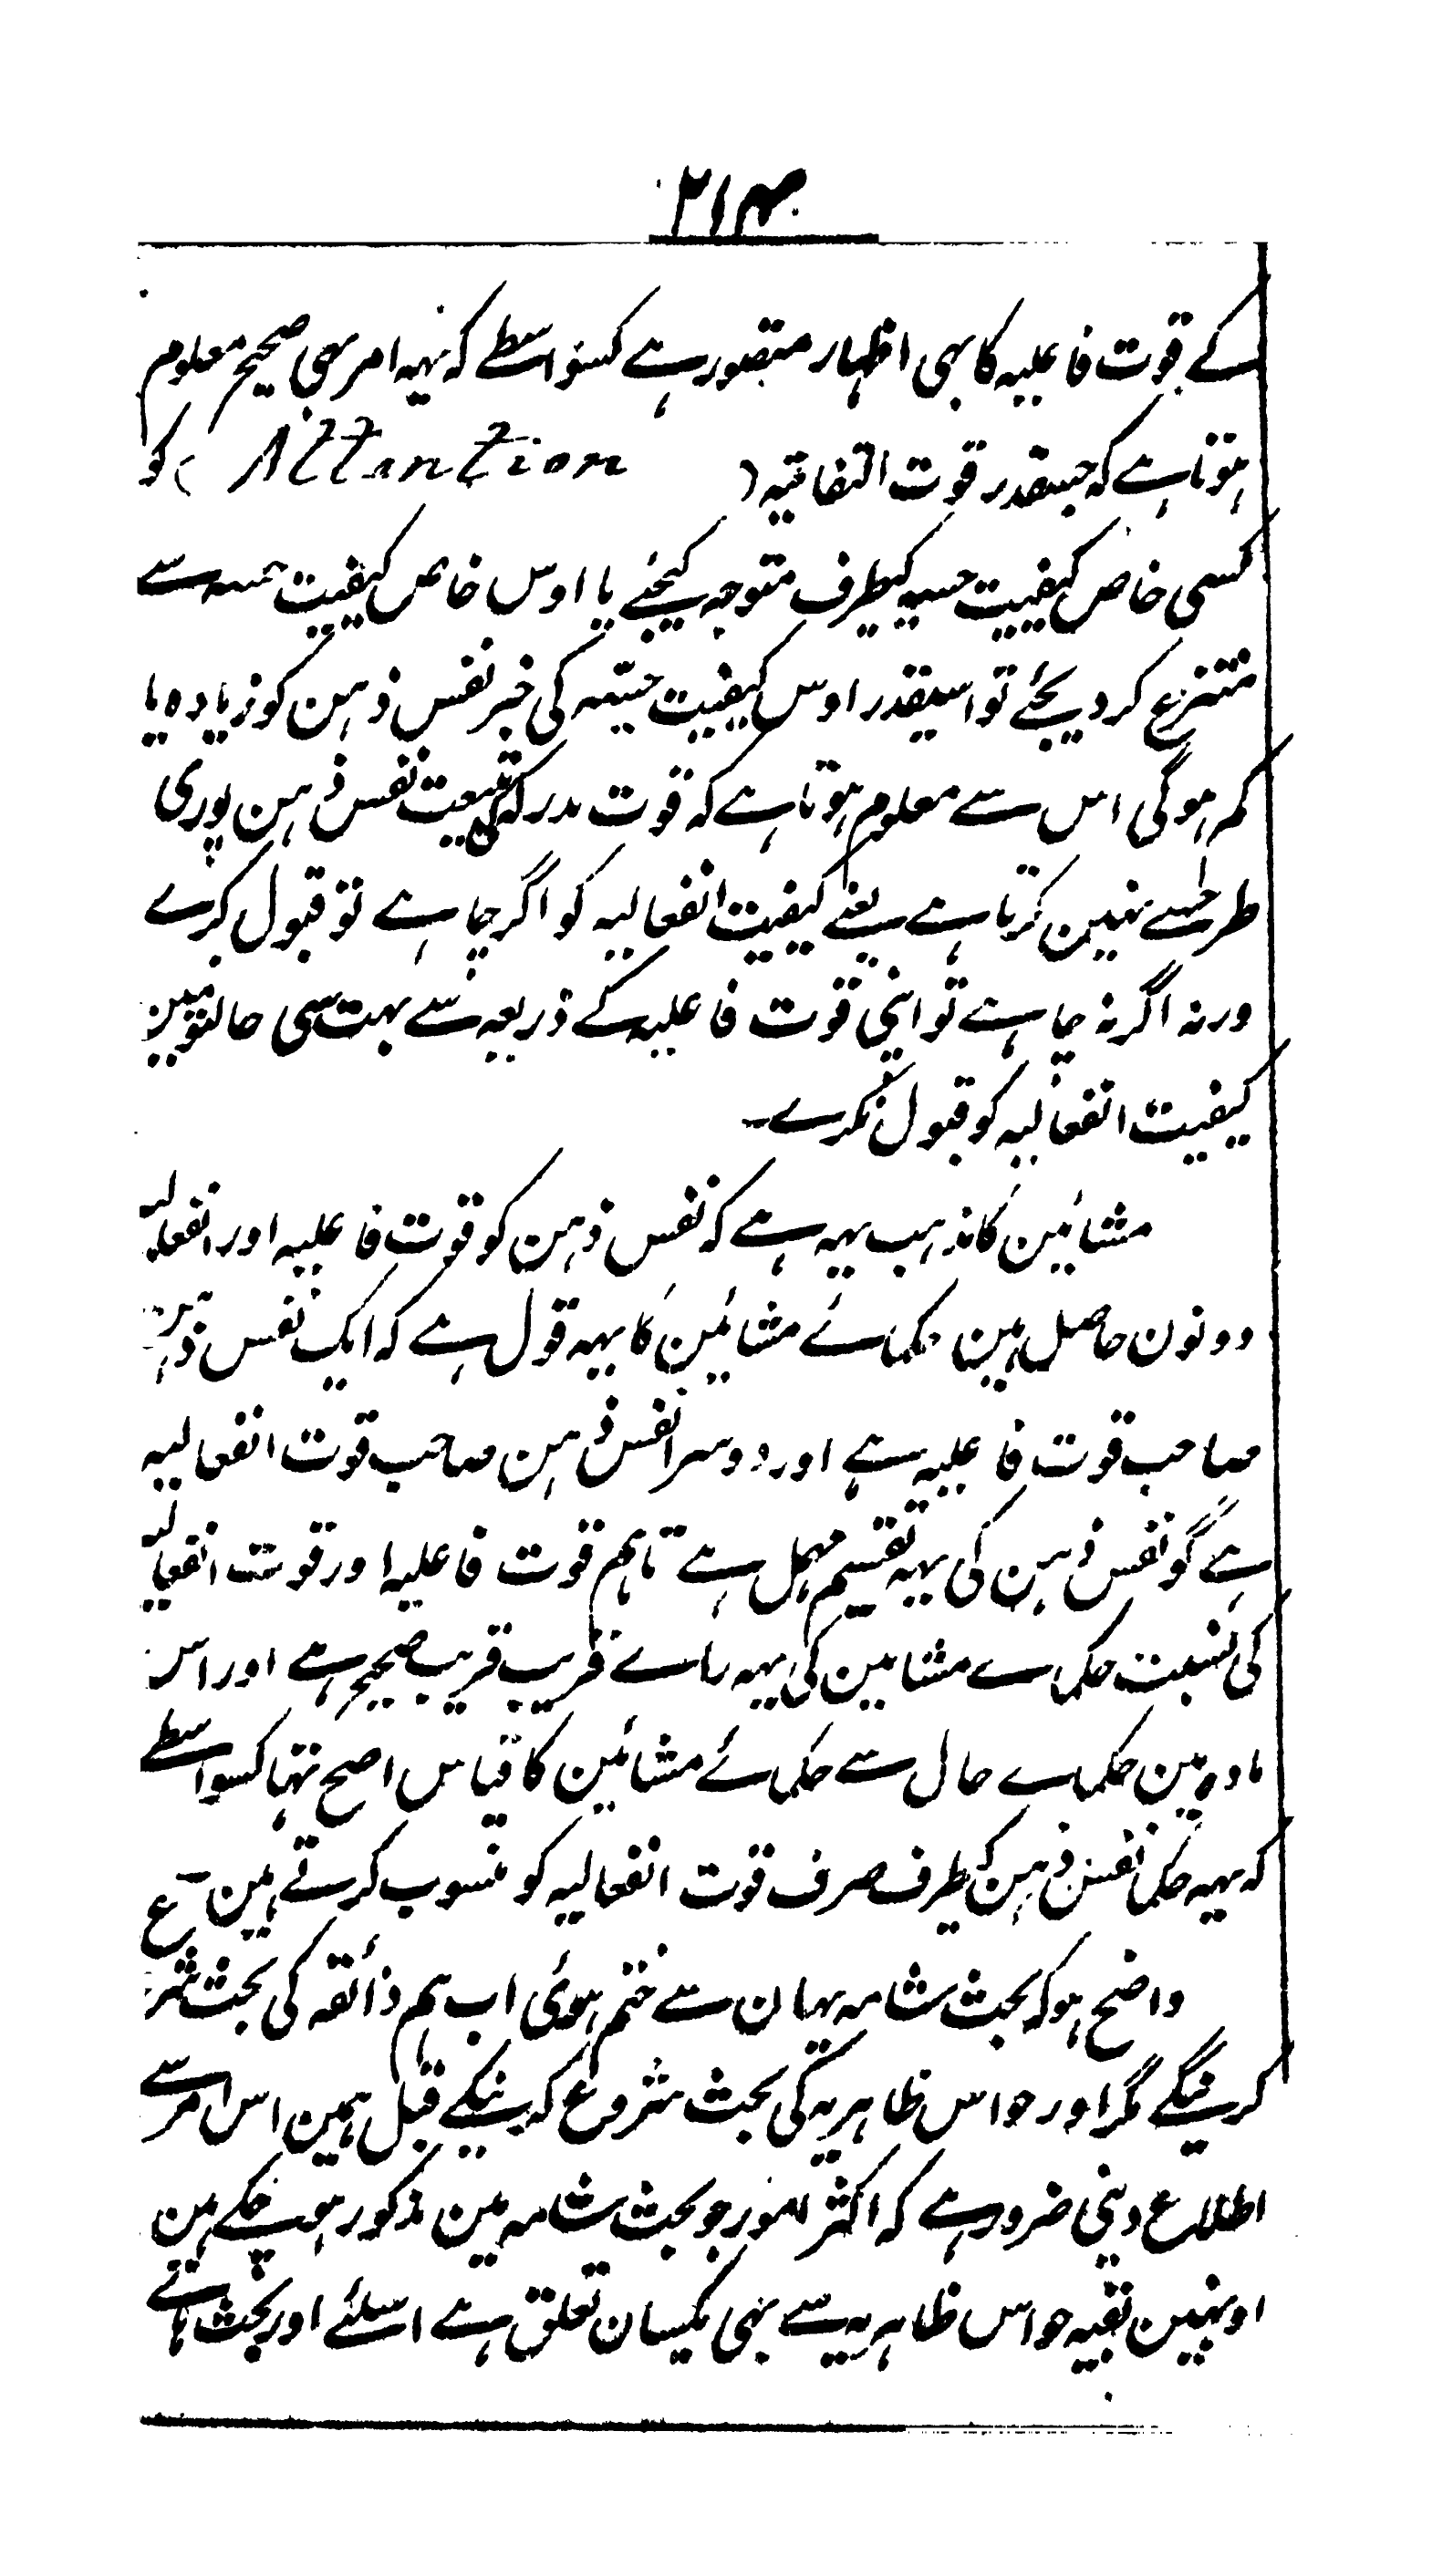 ۲۱۴
کے قوت فاعلیہ کا بہی اظہار متصور ہے کسواسطے کہ یہہ امر بہی صحیح معلوم
ہوتا ہے کہ جسقدر قوت التفاتیہ ( Attantion ) کو
کسی خاص کیفیت حسیہ کیطرف متوجہ کیجئے یا اوس خاص کیفیت حسیہ سے
متنزع کر دیجئے تو اسیقدر اوس کیفیت حسیّہ کی خبر نفس ذہن کو زیادہ یا
کم ہوگی اس سے معلوم ہوتا ہے کہ قوت مدرکہ کی تبعیت نفس ذہن پوری
طرحسے نہین کرتا ہے یعنے کیفیت انفعالیہ کو اگر چاہے تو قبول کرے
ورنہ اگر نہ چاہے تو اپنی قوت فاعلیہ کے ذریعہ سے بہت سی حالتونمین
کیفیت انفعالیہ کو قبول نکرے۔
مشائین کا مذہب یہہ ہے کہ نفس ذہن کو قوت فاعلیہ اور انفعالیہ
دونون حاصل ہین حکمائے مشائین کا یہہ قول ہے کہ ایک نفس ذہن
صاحب قوت فاعلیہ ہے اور دوسرا نفس ذہن صاحب قوت انفعالیہ
ہے گو نفس ذہن کی یہہ تقسیم مہمل ہے تاہم قوت فاعلیہ اور قوت انفعالیہ
کی نسبت حکماے مشایین کی یہہ راے قریب قریب صحیح ہے اور اس
مادہ مین حکماے حال سے حکمائے مشائین کا قیاس اصح تہا کسواسطے
کہ یہہ حکما نفس ذہن کیطرف صرف قوت انفعالیہ کو منسوب کرتے ہین ۔ع
واضح ہو کہ بحث شامہ یہان سے ختم ہوئی اب ہم ذائقہ کی بحث شروع
کرینگے مگر اور حواس ظاہریہ کی بحث شروع کرینیکے قبل ہمین اس امر سے
اطلاع دینی ضرور ہے کہ اکثر امور جو بحث شامہ مین مذکور ہو چکے ہین
اونہین بقیہ حواس ظاہریہ سے بہی یکسان تعلق ہے اسلئے اور بحث ہائے